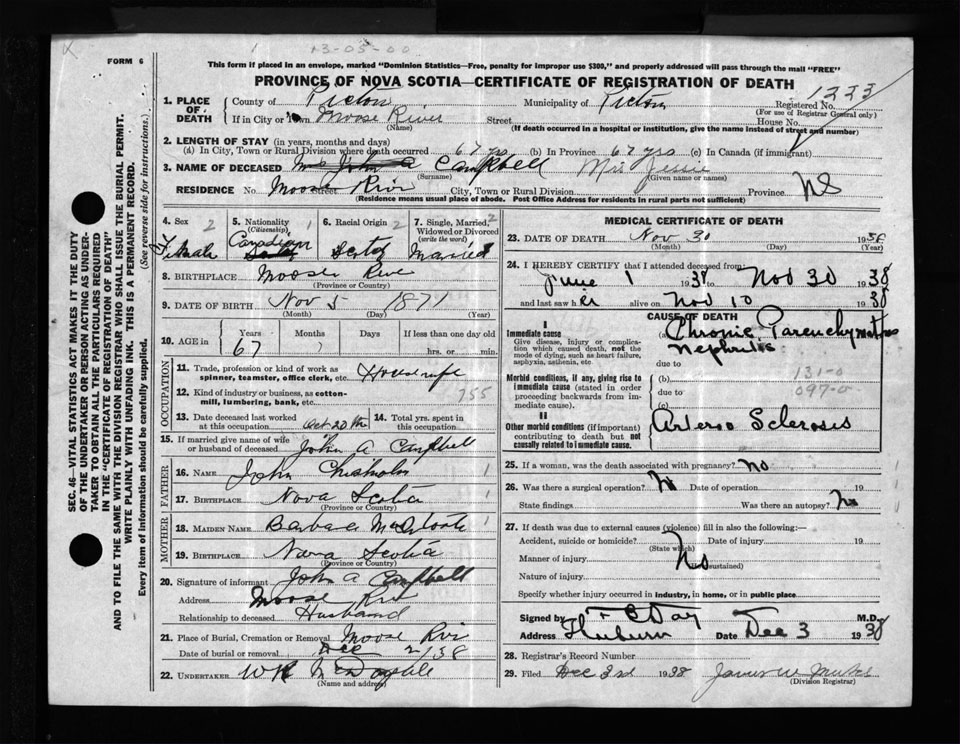 13-05-00
FORM 6
This form if placed in an envelope, marked "Dominion Statistics—Free, penalty for improper use $300," and properly addressed will pass through the mail "FREE"
PROVINCE OF NOVA SCOTIA—CERTIFICATE OF REGISTRATION OF DEATH
1333
1. PLACE OF DEATH County of Pictou Municipality of Pictou Registered No.
(For use of Registrar General only)
If in City or Town Moose River Street House No.
(Name) (If death occurred in a hospital or institution, give the name instead of street and number)
2. LENGTH OF STAY (in years, months and days)
(a) In City, Town or Rural Division where death occurred 67 yrs (b) In Province 67 yrs (c) In Canada (if immigrant)
3. NAME OF DECEASED Mrs John A Campbell Mrs Jessie
(Surname) (Given name or names)
RESIDENCE No. Moose Street River City, Town or Rural Division Province NS
(Residence means usual place of abode. Post Office Address for residents in rural parts not sufficient)
4. Sex 2 5. Nationality (Citizenship) 1 6. Racial Origin 2 7. Single, Married, Widowed or Divorced (write the word) 2
Female Canadian Scotch Married
8. BIRTHPLACE Moose River
(Province or Country)
9. DATE OF BIRTH Nov 5 1871
(Month) (Day) (Year)
10. AGE in Years Months Days If less than one day old
67 hrs. or min.
OCCUPATION
11. Trade, profession or kind of work as spinner, teamster, office clerk, etc. Housewife
12. Kind of industry or business, as cotton-mill, lumbering, bank, etc. 755
13. Date deceased last worked at this occupation Oct 20th 14. Total yrs. spent in this occupation
15. If married give name of wife or husband of deceased John A Campbell
FATHER
16. NAME John Chisholm 1
17. BIRTHPLACE Nova Scotia 1
MOTHER
18. MAIDEN NAME Barbara 1
19. BIRTHPLACE Nova Scotia
(Province or Country)
20. Signature of informant John A Campbell
Address Moose River
Relationship to deceased Husband
21. Place of Burial, Cremation or Removal Moose River
Date of burial or removal Dec 2/38
22. UNDERTAKER
(Name and address)
MEDICAL CERTIFICATE OF DEATH
23. DATE OF DEATH Nov 30 19
(Month) (Day) (Year)
24. I HEREBY CERTIFY that I attended deceased from:
June 1 1938 to Nov 30 1938
and last saw her alive on Nov 10 1938
CAUSE OF DEATH
I
Immediate cause (a) Chronic Parenchymatous Nephritis
Give disease, injury or complication which caused death, not the mode of dying, such as heart failure, asphyxia, asthenia, etc.
due to
131-0
Morbid conditions, if any, giving rise to immediate cause (stated in order proceeding backwards from immediate cause). (b)
due to 097-0
(c)
II
Other morbid conditions (if important) contributing to death but not causally related to immediate cause. Arterio Sclerosis
25. If a woman, was the death associated with pregnancy? No
26. Was there a surgical operation? No Date of operation 19
State findings Was there an autopsy? No
27. If death was due to external causes (violence) fill in also the following:—
Accident, suicide or homicide? Date of injury 19
(State which)
Manner of injury No
(How sustained)
Nature of injury
Specify whether injury occurred in industry, in home, or in public place
Signed by Day M.D.
Address Thorburn Date Dec 3 1938
28. Registrar's Record Number
29. Filed Dec 3rd 1938 James W
(Division Registrar)
SEC. 46—VITAL STATISTICS ACT MAKES IT THE DUTY
OF THE UNDERTAKER OR PERSON ACTING AS UNDERTAKER TO OBTAIN ALL THE PARTICULARS REQUIRED
IN THE "CERTIFICATE OF REGISTRATION OF DEATH"
AND TO FILE THE SAME WITH THE DIVISION REGISTRAR WHO SHALL ISSUE THE BURIAL PERMIT.
WRITE PLAINLY WITH UNFADING INK. THIS IS A PERMANENT RECORD.
Every item of Information should be carefully supplied. (See reverse side for instructions.)